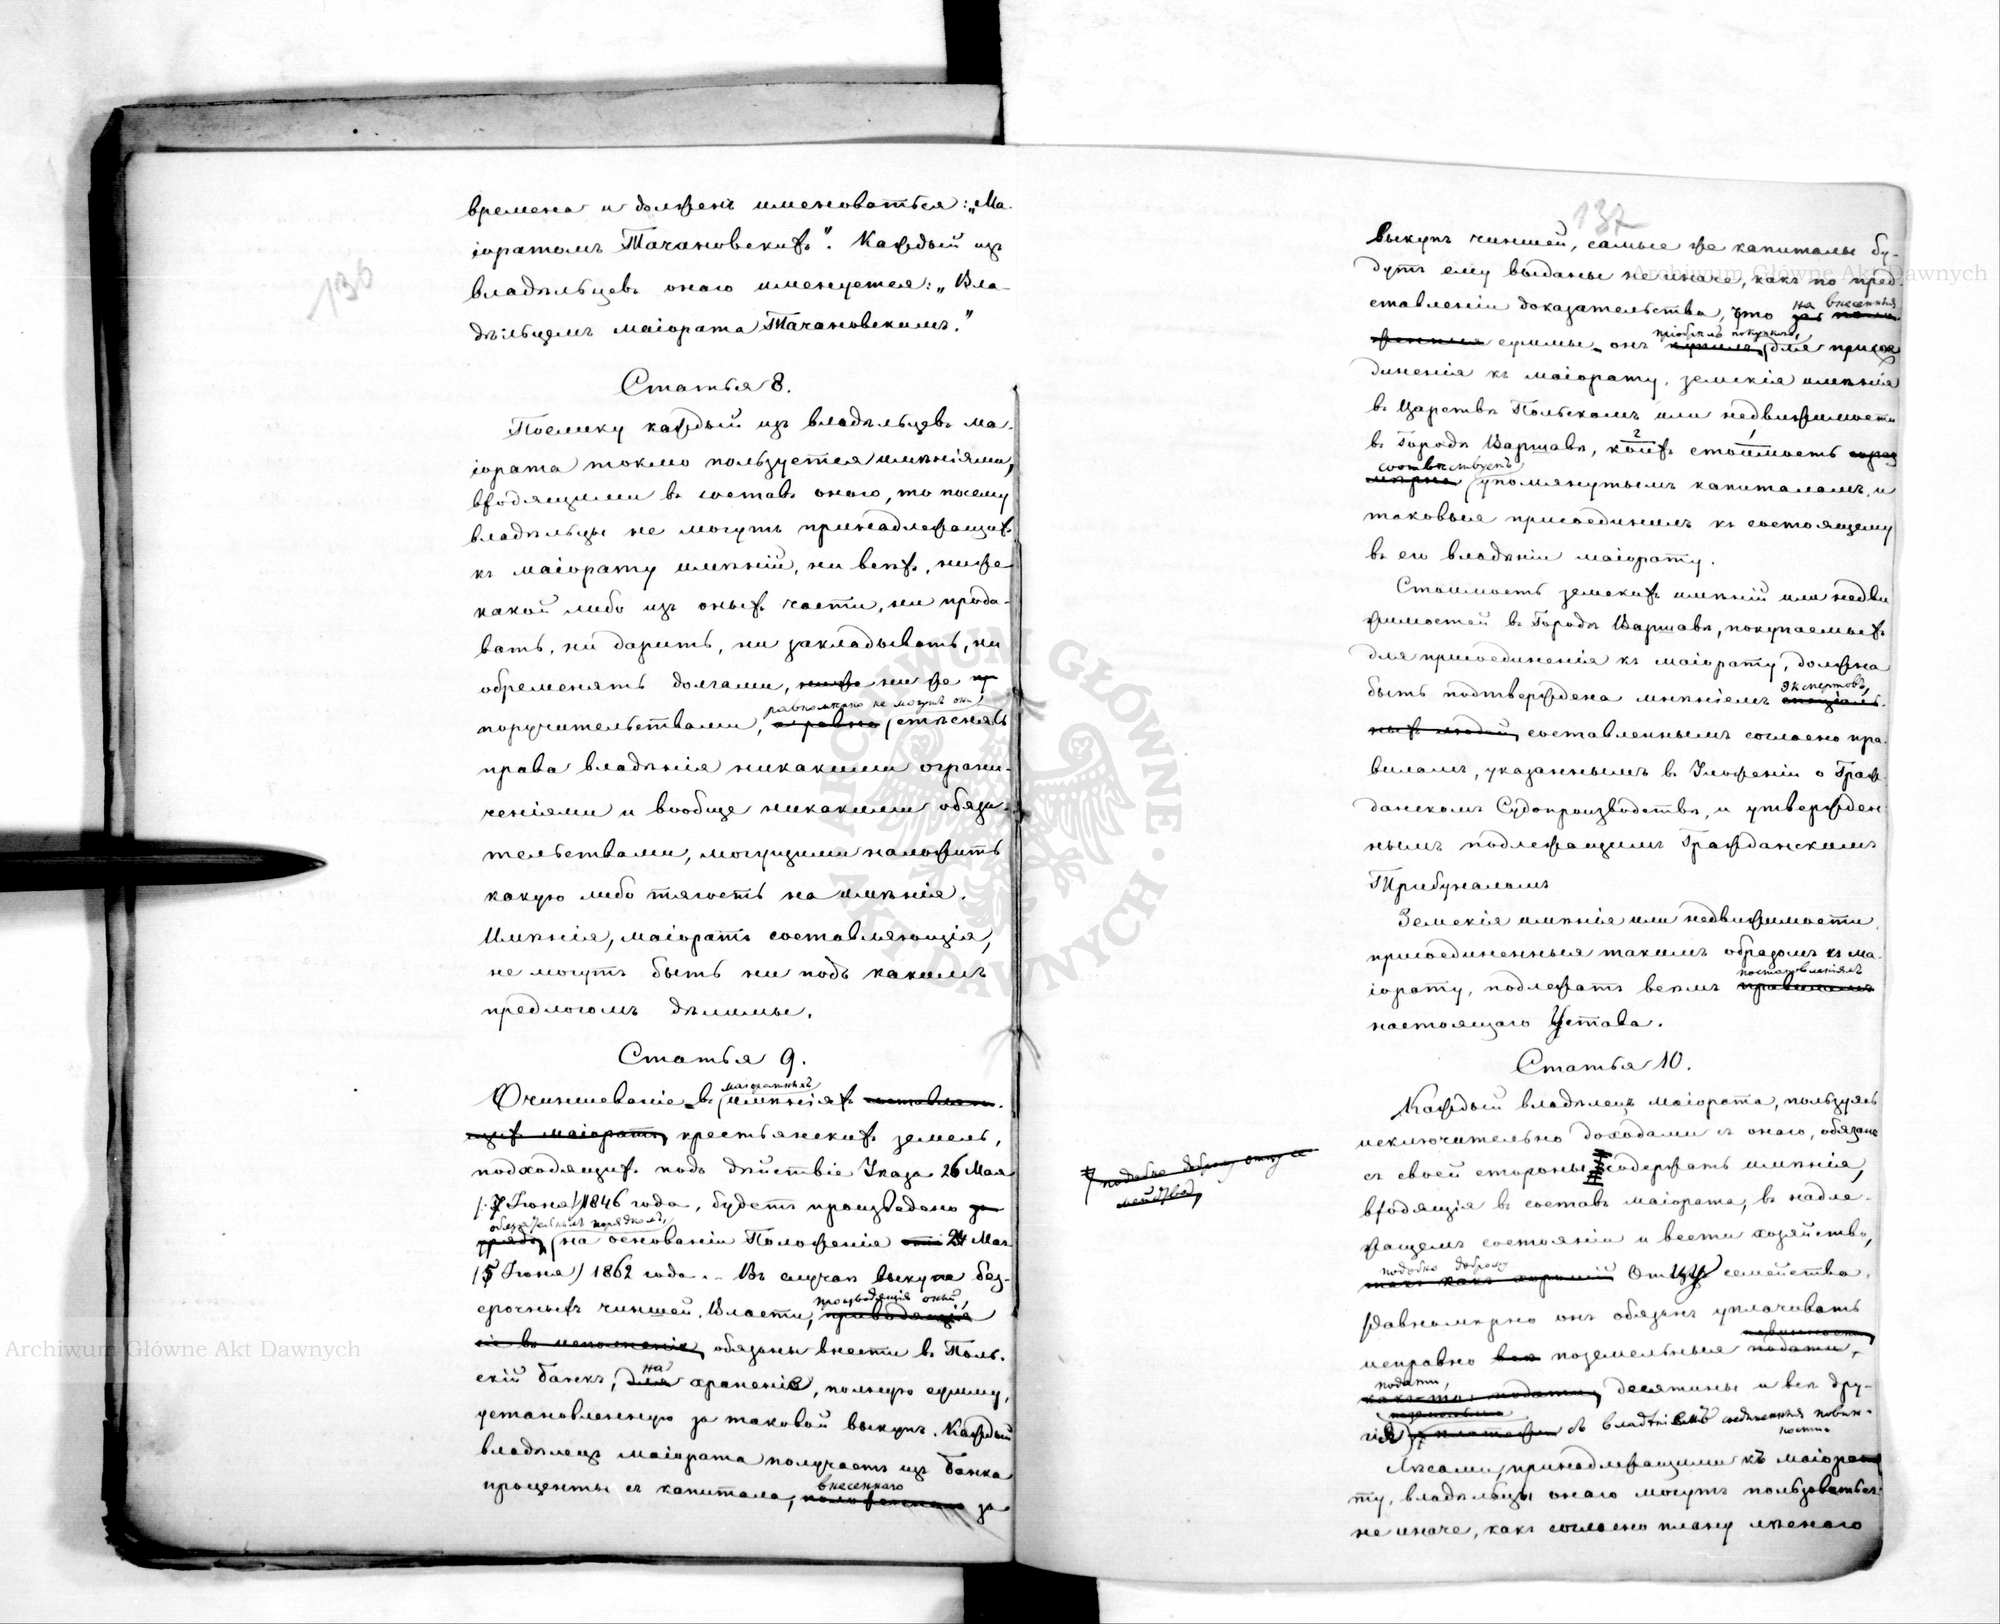 136
времена и долженъ именоваться: „Ма-
іоратомъ Тачановскихъ". Каждый изъ
владѣльцевъ онаго именуется: „Вла-
дѣльцемъ маіората Тачановскимъ."
Статья 8.
Поелику каждый изъ владѣльцевъ ма-
іората токмо пользуется имѣніями,
входящими въ составъ онаго, то посему
владѣльцы не могутъ принадлежащихъ
къ маіорату имѣній, ни всѣхъ, ниже
какой либо изъ оныхъ части, ни прода-
вать, ни дарить, ни закладывать, ни
обременять долгами, ниже ни же пр
равномѣрно не могутъ они
поручительствами, а равно стѣснять
права владѣнія никакими ограни-
ченіями и вообще никакими обяза-
тельствами, могущими наложить
какую либо тягость на имѣнія.
Имѣнія, маіоратъ составляющія,
не могутъ быть ни подъ какимъ
предлогомъ дѣлимы.
Статья 9.
маіоратныхъ
Очиншеваніе въ имѣніяхъ составляю-
щихъ маіоратъ, крестьянскихъ земель,
подходящихъ подъ дѣйствіе Указа 26 Мая
/7 Іюня/ 1846 года, будетъ произведено за
обязательнымъ порядкомъ,
на основаніи Положенія отъ 24 Мая
/5 Іюня/ 1862 года. Въ случаѣ выкупа без-
производящія оный,
срочныхъ чиншей, Власти, приводящія
въ исполненіе, обязаны внести въ Поль-
на
скій банкъ, для храненіе, полную сумму,
установленную за таковой выкупъ. Каждый
владѣлецъ маіората получаетъ изъ банка
внесеннаго
проценты съ капитала, положеннаго за
137
выкупъ чиншей, самые же капиталы бу-
дутъ ему выданы не иначе, какъ по пред-
на внесенныя
ставленіи доказательства, что за поло-
пріобрѣлъ покупкою,
женныя суммы онъ купилъ для присое-
диненія къ маіорату, земскія имѣнія
въ Царствѣ Польскомъ или недвижимости
2 1
въ Городѣ Варшавѣ, коихъ стоимость сораз
соотвѣтствуетъ
мѣрна упомянутымъ капиталамъ, и
таковыя присоединилъ къ состоящему
въ его владѣніи маіорату.
Стоимость земскихъ имѣній или недви
жимостей въ Городѣ Варшавѣ, покупаемыхъ
для присоединенія къ маіорату, должна
экспертовъ,
быть подтверждена мнѣніемъ спеціаль-
ныхъ людей, составленнымъ согласно пра-
виламъ, указаннымъ въ Уложеніи о Граж-
данскомъ Судопроизводствѣ, и утвержден-
нымъ подлежащимъ Гражданскимъ
Трибуналомъ
Земскія имѣнія или недвижимости,
присоединенныя такимъ образомъ къ ма-
постановленіямъ
іорату, подлежатъ всѣмъ правиламъ
настоящаго Устава.
Статья 10.
Каждый владѣлецъ маіората, пользуясь
исключительно доходами съ онаго, обязанъ
съ своей стороны содержать имѣнія,
входящія въ составъ маіората, въ надле-
жащемъ состояніи и вести хозяйство,
подобно доброму
такъ какъ хорошій Отцу семейства.
Равномѣрно онъ обязанъ уплачивать
повинности
исправно все поземельныя подати,
подати,
какъ-то: подати, десятины и всѣ дру-
поземельныя
гія съ владѣніемъ соединенныя повин-
ности
Лѣсами, принадлежащими къ маіора
ту, владѣльцы онаго могутъ пользоваться
не иначе, какъ согласно плану лѣснаго
подобно доброму отцу се
мейства,
Archiwum Główne Akt Dawnych
Archiwum Główne Akt Dawnych
ARCHIWUM GŁÓWNE AKT DAWNYCH